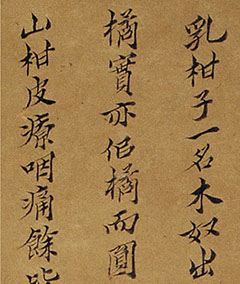 乳柑子一名木奴出
橘實亦伯橘而圓
山柑皮療咽痛餘皆